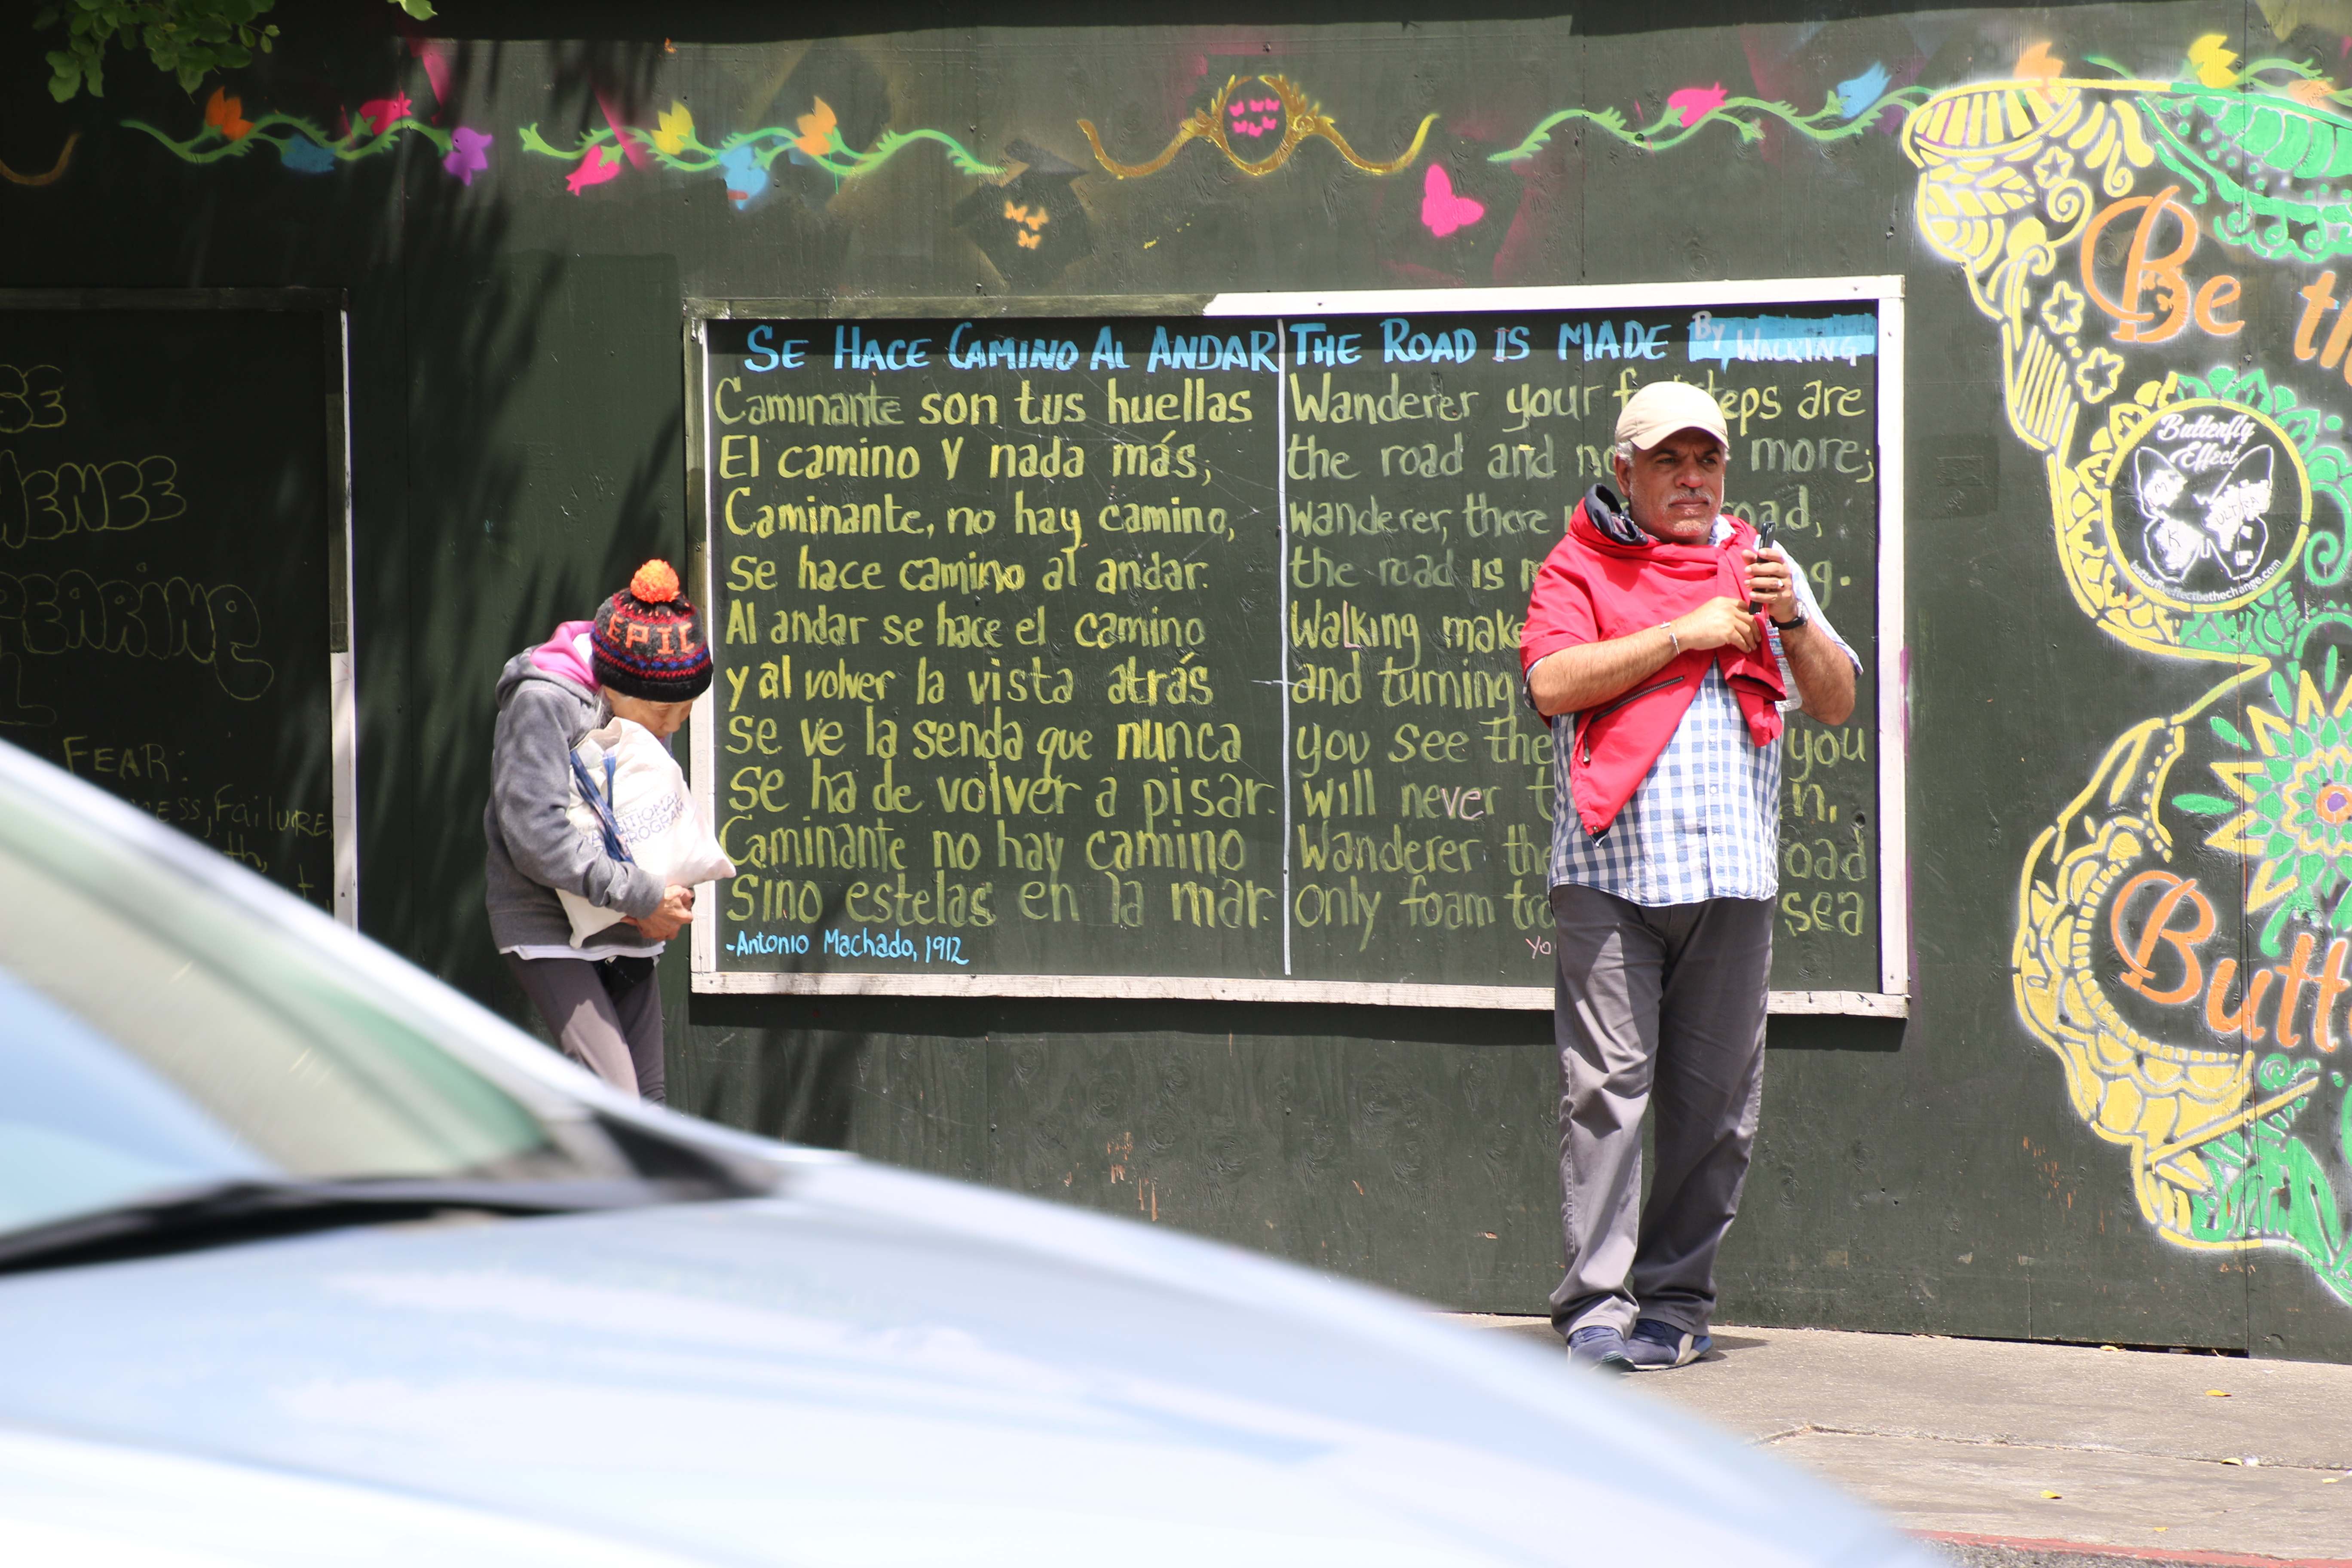 SE HACE CAMINO AL ANDAR
Caminante son tus huellas
El camino Y nada más,
Caminante, no hay camino,
se hace camino al andar.
Al andar se hace el camino
y al volver la vista atrás
se ve la senda que nunca
se ha de volver a pisar.
Caminante no hay camino
Sino estelas en la mar.
-Antonio Machado, 1912
THE ROAD IS MADE By WALKING
Wanderer your are
the road and more;
wanderer, there road,
the road is
Walking make
and turning
you see the you
will never
Wanderer the road
only foam sea
EPIC
FEAR:
Failure,
Be
Butterfly
Effect
butterflyeffectbethechange.com